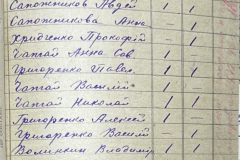 Сапожников Авдей 1 1
Сапожникова Анна 1 1
Хридченко Прокофий 1 1
Чапгай Анна Сов. 1 1
Григоренко Павел 1 1
Чапгай Василий 1 1
Чапгай Николай 1 1
Григоренко Алексей 1 1
Григоренко Василий - 1
Волинкин Владимир 1 1